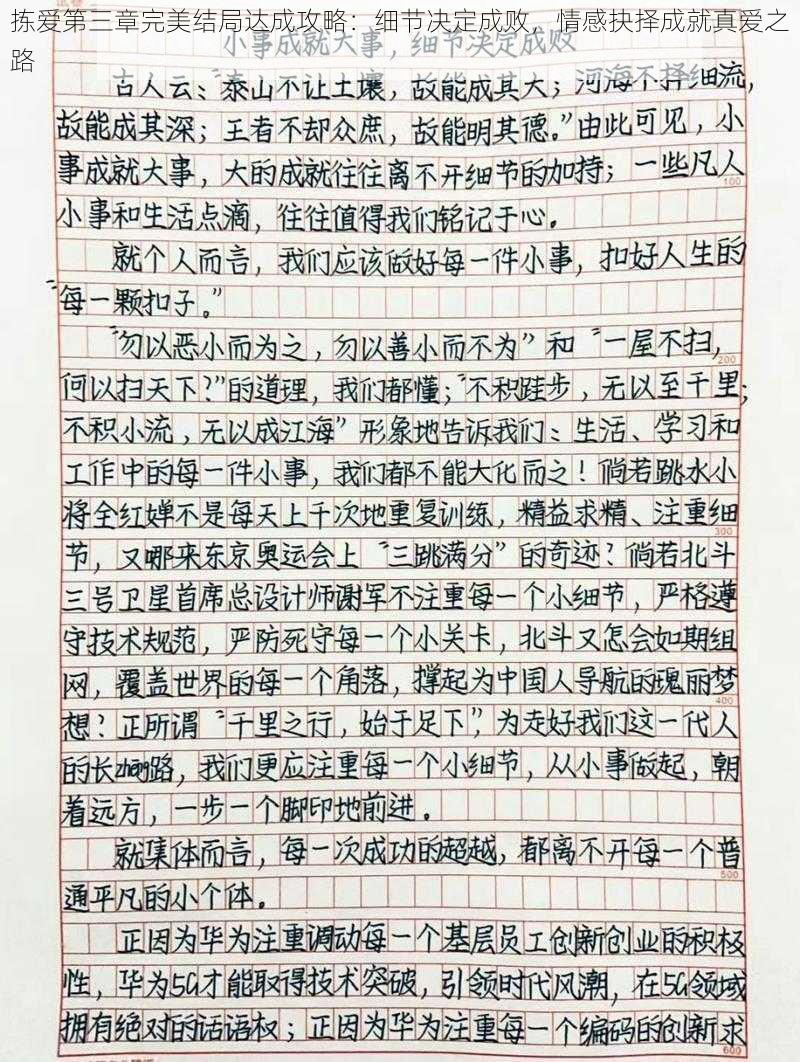 拣爱第三章完美结局达成攻略：细节决定成败，情感抉择成就真爱之
路
小事成就大事，细节决定成败
古人云：“泰山不让土壤，故能成其大；河海不择细流，
故能成其深；王者不却众庶，故能明其德。”由此可见，小
事成就大事，大的成就往往离不开细节的加持；一些凡人
100
小事和生活点滴，往往值得我们铭记于心。
就个人而言，我们应该做好每一件小事，扣好人生的
“每一颗扣子。”
“勿以恶小而为之，勿以善小而不为”和“一屋不扫，
200
何以扫天下？”的道理，我们都懂；“不积跬步，无以至千里；
不积小流，无以成江海”形象地告诉我们：生活、学习和
工作中的每一件小事，我们都不能大化而之！倘若跳水小
将全红婵不是每天上千次地重复训练，精益求精、注重细
300
节，又哪来东京奥运会上“三跳满分”的奇迹？倘若北斗
三号卫星首席总设计师谢军不注重每一个小细节，严格遵
守技术规范，严防死守每一个小关卡，北斗又怎会如期组
网，覆盖世界的每一个角落，撑起为中国人导航的瑰丽梦
400
想？正所谓“千里之行，始于足下”，为走好我们这一代人
的长路，我们更应注重每一个小细节，从小事做起，朝
着远方，一步一个脚印地前进。
就集体而言，每一次成功的超越，都离不开每一个普
500
通平凡的小个体。
正因为华为注重调动每一个基层员工创新创业的积极
性，华为5G才能取得技术突破，引领时代风潮，在5G领域
拥有绝对的话语权；正因为华为注重每一个编码的创新求
600